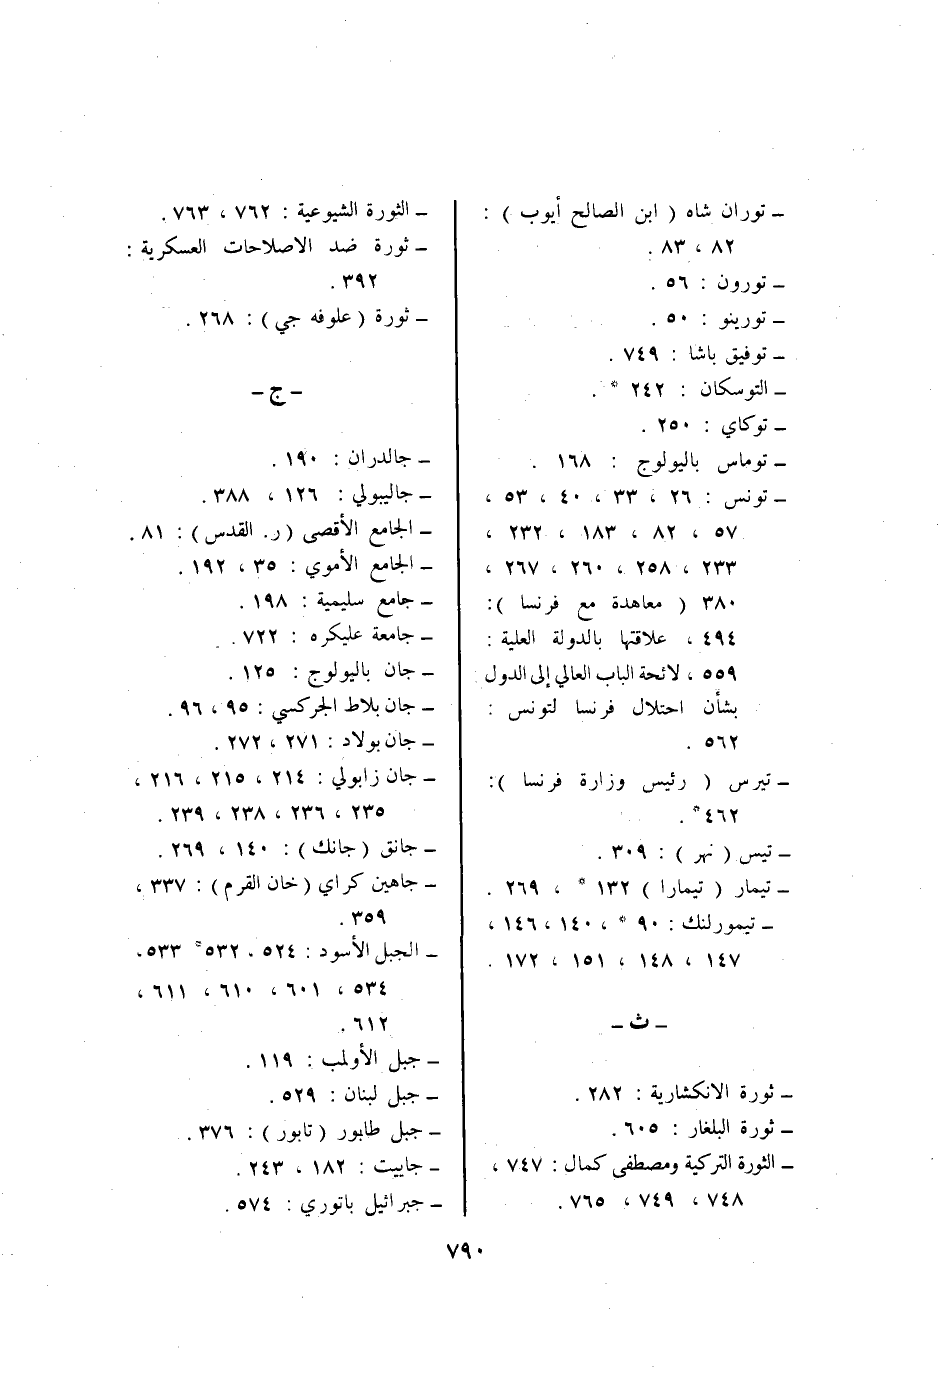 ـ توران شاه ( ابن الصالح أيوب ) :
٨٢ ، ٨٣ .
ـ تورون : ٥٦ .
ـ تورينو : ٥٠ .
ـ توفيق باشا : ٧٤٩ .
ـ التوسكان : ٢٤٢ * .
ـ توكاي : ٢٥٠ .
ـ توماس باليولوج : ١٦٨ .
ـ تونس : ٢٦ ، ٣٣ ، ٤٠ ، ٥٣ ،
٥٧ ، ٨٢ ، ١٨٣ ، ٢٣٢ ،
٢٣٣ ، ٢٥٨ ، ٢٦٠ ، ٢٦٧ ،
٣٨٠ ( معاهدة مع فرنسا ):
٤٩٤ ، علاقتها بالدولة العلية :
٥٥٩ ، لائحة الباب العالي إلى الدول
بشأن احتلال فرنسا لتونس :
٥٦٢ .
ـ تيرس ( رئيس وزارة فرنسا ):
٤٦٢* .
ـ تيس ( نهر ) : ٣٠٩ .
ـ تيمار ( تيمارا ) ١٣٢ * ، ٢٦٩ .
ـ تيمورلنك : ٩٠ * ، ١٤٠ ، ١٤٦ ،
١٤٧ ، ١٤٨ ، ١٥١ ، ١٧٢ .
ـ ث ـ
ـ ثورة الانكشارية : ٢٨٢ .
ـ ثورة البلغار : ٦٠٥ .
ـ الثورة التركية ومصطفى كمال : ٧٤٧ ،
٧٤٨ ، ٧٤٩ ، ٧٦٥ .
ـ الثورة الشيوعية : ٧٦٢ ، ٧٦٣ .
ـ ثورة ضد الاصلاحات العسكرية :
٣٩٢ .
ـ ثورة ( علوفه جي ) : ٢٦٨ .
ـ ج ـ
ـ جالدران : ١٩٠ .
ـ جاليبولي : ١٢٦ ، ٣٨٨ .
ـ الجامع الأقصى ( ر. القدس ) : ٨١ .
ـ الجامع الأموي : ٣٥ ، ١٩٢ .
ـ جامع سليمية : ١٩٨ .
ـ جامعة عليكره : ٧٢٢ .
ـ جان باليولوج : ١٢٥ .
ـ جان بلاط الجركسي : ٩٥ ، ٩٦ .
ـ جان بولاد : ٢٧١ ، ٢٧٢ .
ـ جان زابولي : ٢١٤ ، ٢١٥ ، ٢١٦ ،
٢٣٥ ، ٢٣٦ ، ٢٣٨ ، ٢٣٩ .
ـ جانق ( جانك ) : ١٤٠ ، ٢٦٩ .
ـ جاهين كراي ( خان القرم ) : ٣٣٧ ،
٣٥٩ .
ـ الجبل الأسود : ٥٢٤ ، ٥٣٢* ٥٣٣ ،
٥٣٤ ، ٦٠١ ، ٦١٠ ، ٦١١ ،
٦١٢ .
ـ جبل الأولمب : ١١٩ .
ـ جبل لبنان : ٥٢٩ .
ـ جبل طابور ( تابور ) : ٣٧٦ .
ـ جاييت : ١٨٢ ، ٢٤٣ .
ـ جبرائيل باتوري : ٥٧٤ .
٧٩٠